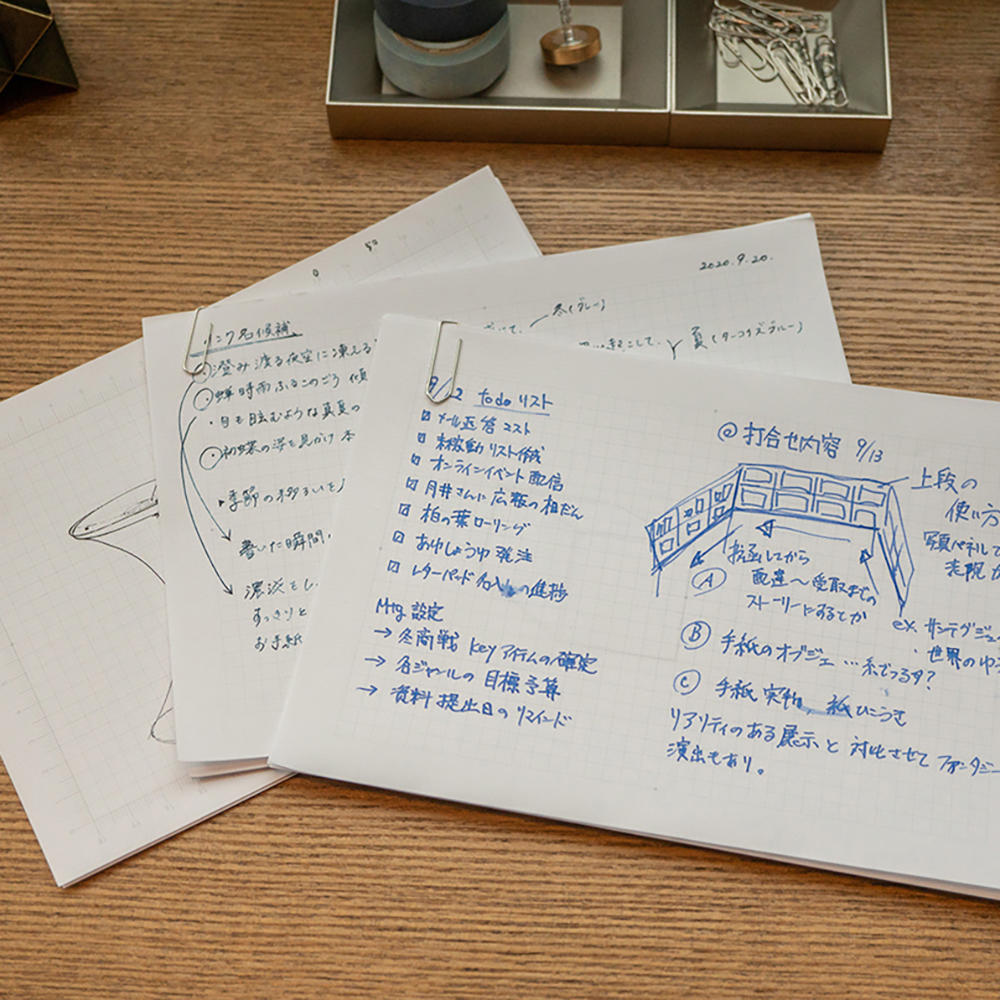 50
0
2020.9.20.
インク名候補
澄み渡る夜空に凍える
蝉時雨ふるこのごろ 傾
・目も眩むような真夏の
初蝶の姿を見かけ 本
季節の移ろいを
書いた瞬間、
濃淡をし
すっきりと
お手紙
冬(ブルー)
夏(ターコイズブルー)
9/12 todo リスト
☑ メール返答 コスト
☑ 未稼動リスト作成
☑ オンラインイベント配信
☑ 月井さんに広報の相だん
☑ 柏の葉ローリング
☑ おゆしょうゆ 発注
☑ レターパッド の進捗
Mtg 設定
→ 冬商戦 keyアイテムの確定
→ 各ジャンルの目標予算
→ 資料提出日のリマインド
@打合せ内容 9/13
上段の
使い方
写真パネルで
世界の
投函してから
配達〜受取までの
ストーリーにするとか
ex.
Ⓐ
Ⓑ 手紙のオブジェ…糸でつるす?
Ⓒ 手紙実物、紙ひこうき
リアリティのある展示と対比させて ファンタジー
演出もあり。